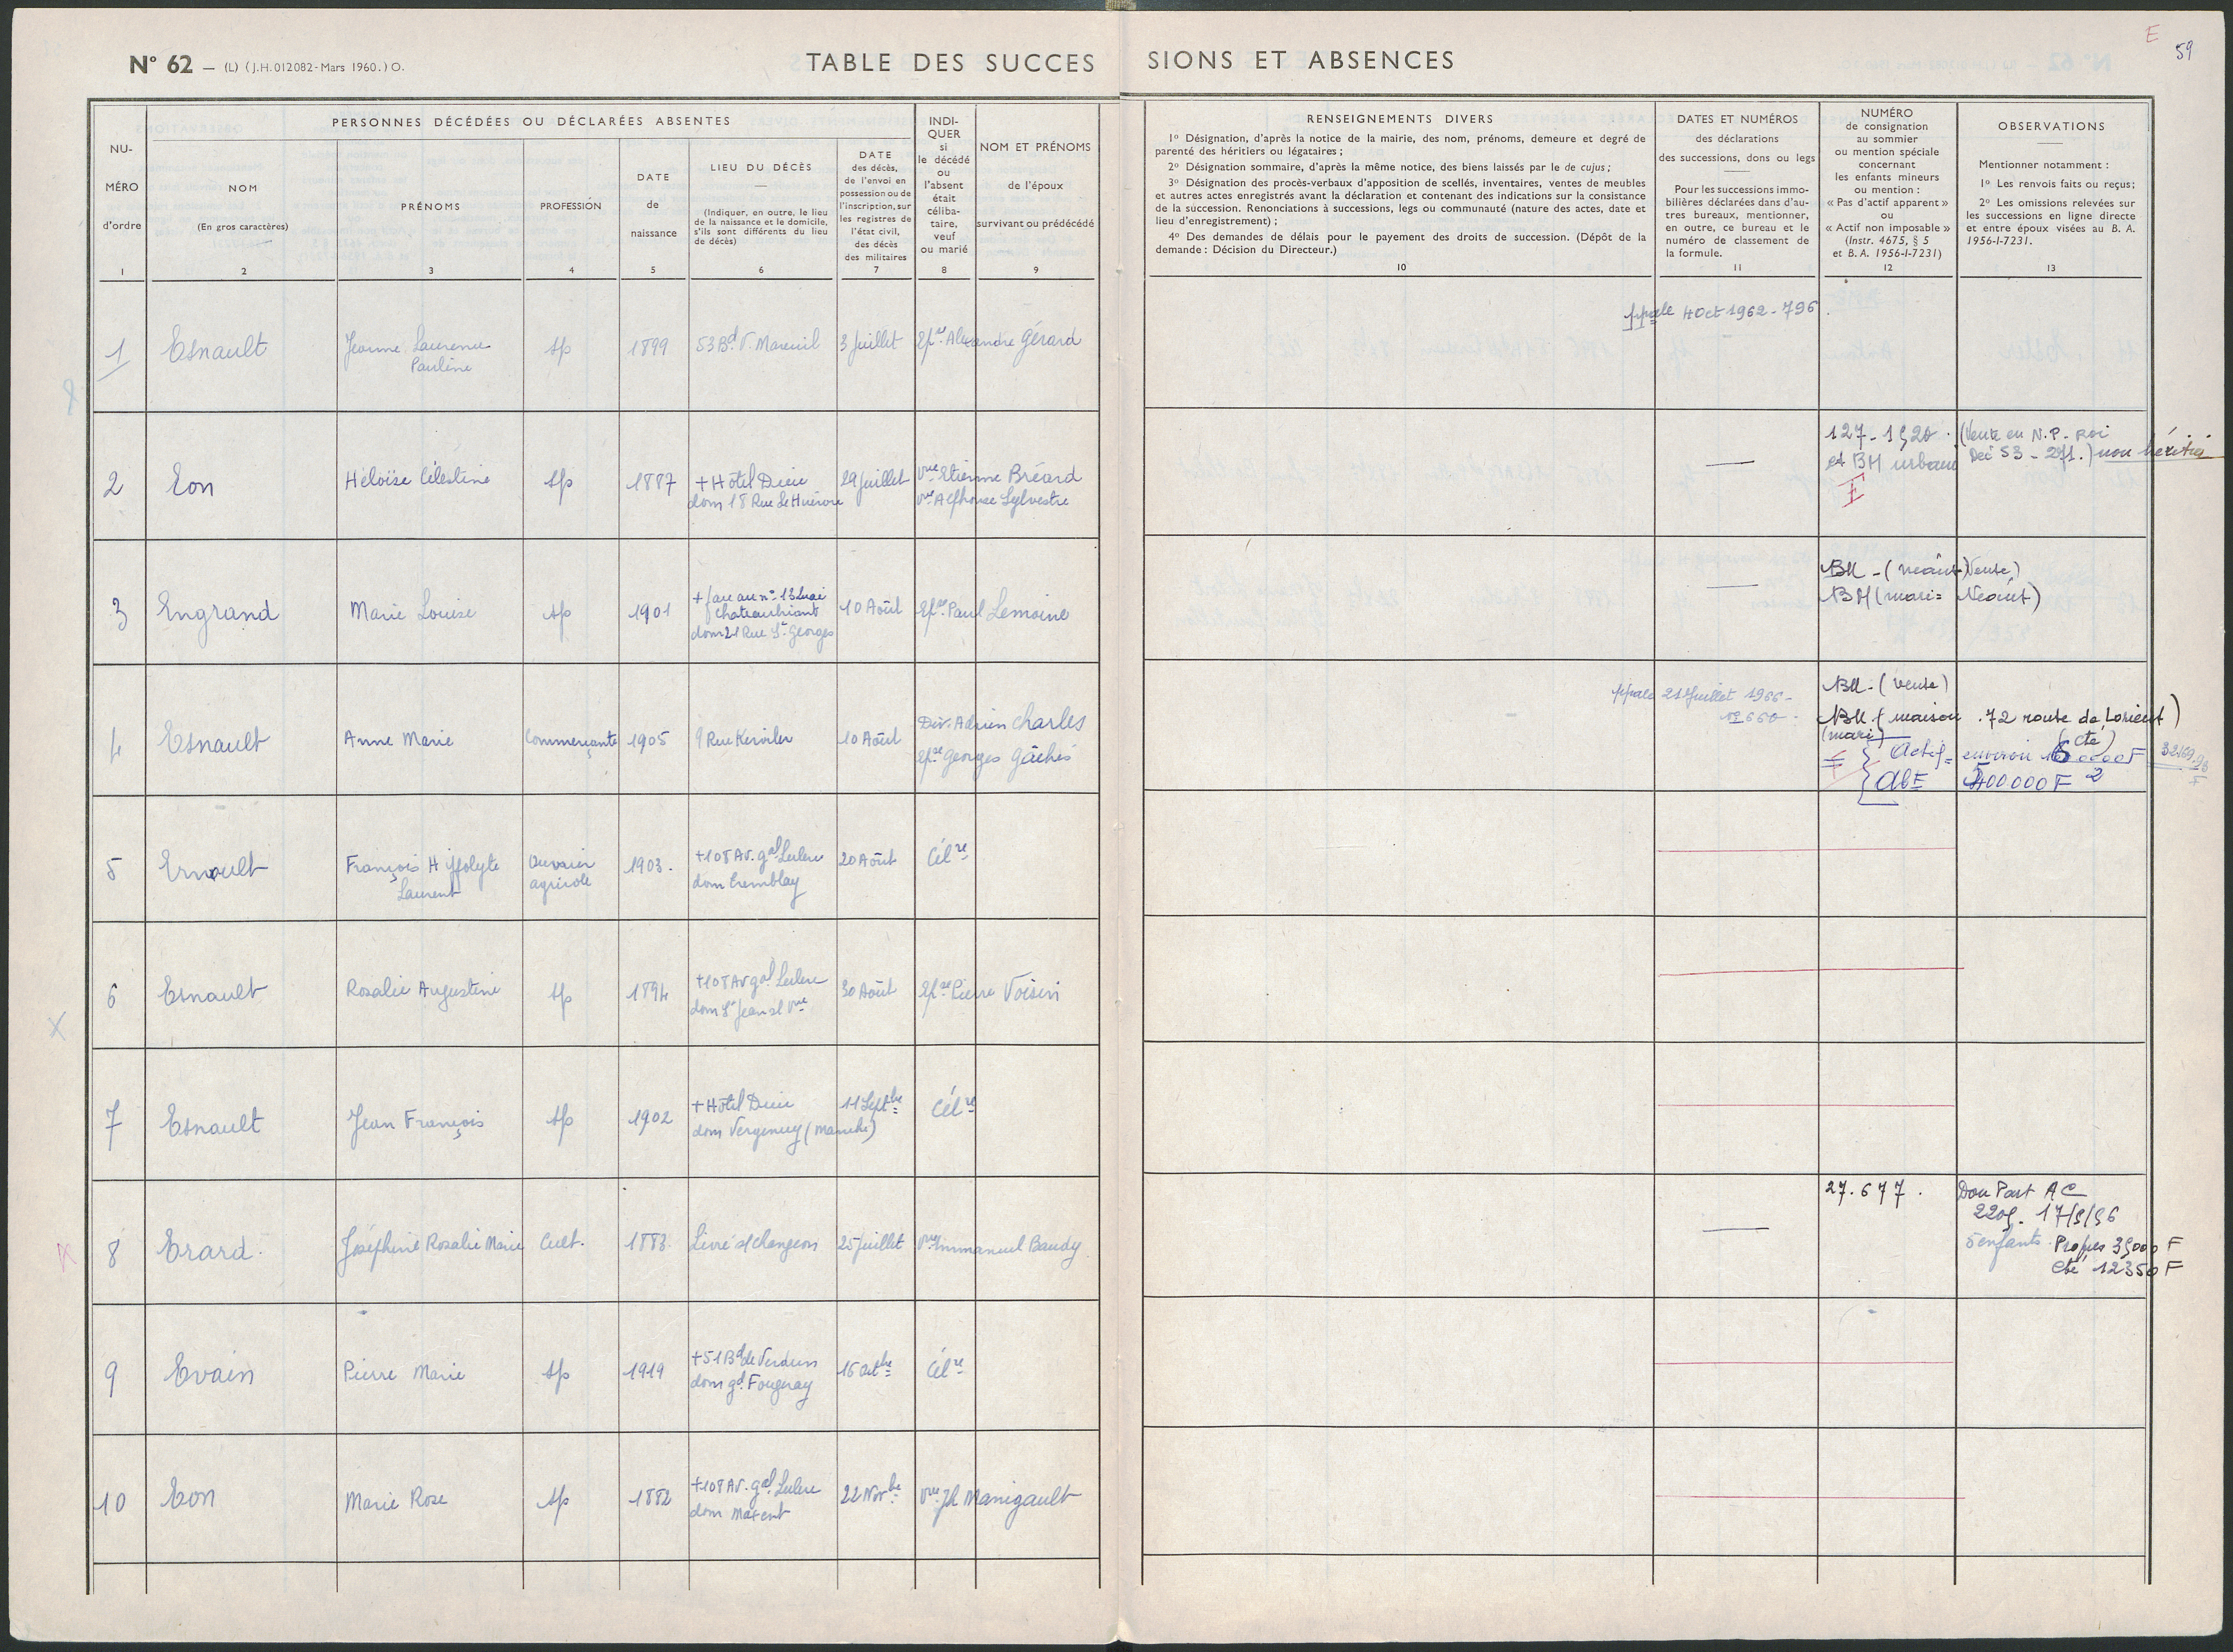 E
59
N° 62 — (L) (J.H. 012082-Mars 1960.) O.
TABLE DES SUCCES SIONS ET ABSENCES
PERSONNES DÉCÉDÉES OU DÉCLARÉES ABSENTES
NU-
MÉRO
d'ordre
1
NOM
(En gros caractères)
2
PRÉNOMS
3
PROFESSION
4
DATE
de
naissance
5
LIEU DU DÉCÈS
(Indiquer, en outre, le lieu
de la naissance et le domicile,
s'ils sont différents du lieu
de décès)
6
DATE
des décès,
de l'envoi en
possession ou de
l'inscription, sur
les registres de
l'état civil,
des décès
des militaires
7
INDI-
QUER
si
le décédé
ou
l'absent
était
céliba-
taire,
veuf
ou marié
8
NOM ET PRÉNOMS
de l'époux
survivant ou prédécédé
9
RENSEIGNEMENTS DIVERS
1° Désignation, d'après la notice de la mairie, des nom, prénoms, demeure et degré de
parenté des héritiers ou légataires ;
2° Désignation sommaire, d'après la même notice, des biens laissés par le de cujus ;
3° Désignation des procès-verbaux d'apposition de scellés, inventaires, ventes de meubles
et autres actes enregistrés avant la déclaration et contenant des indications sur la consistance
de la succession. Renonciations à successions, legs ou communauté (nature des actes, date et
lieu d'enregistrement) ;
4° Des demandes de délais pour le payement des droits de succession. (Dépôt de la
demande : Décision du Directeur.)
10
DATES ET NUMÉROS
des déclarations
des successions, dons ou legs
Pour les successions immo-
bilières déclarées dans d'au-
tres bureaux, mentionner,
en outre, ce bureau et le
numéro de classement de
la formule.
11
NUMÉRO
de consignation
au sommier
ou mention spéciale
concernant
les enfants mineurs
ou mention :
« Pas d'actif apparent »
ou
« Actif non imposable »
(Instr. 4675, § 5
et B. A. 1956-I-7231)
12
OBSERVATIONS
Mentionner notamment :
1° Les renvois faits ou reçus;
2° Les omissions relevées sur
les successions en ligne directe
et entre époux visées au B. A.
1956-I-7231.
13
1 Esnault Jeanne Laurence sp 1899 53 Bd V. Mareuil 3 Juillet Epse Alexandre Gérard
Pauline
ppale 4 Oct 1962 - 796
2 Eon Héloïse Célestine sp 1887 + Hôtel Dieu 29 Juillet Vve Etienne Bréard
dom 18 Rue Le Vve Alphonse Sylvestre
127 - 1520 . (Vente en N.P.
et BH urbain Dec 53 - 271.) non héritier
F
3 Engrand Marie Louise sp 1901 + face au n° 13 Quai 10 Août Epse Paul Lemoine
Chateaubriant
dom 21 Rue St Georges
BM - (néant) Vente)
BM (mari = Néant)
4 Esnault Anne Marie Commerçante 1905 9 Rue Kerviler 10 Août Div. Adrien Charles
Epse Georges Gâchés
ppale 21 Juillet 1966 -
BM - (vente)
BM (maison . 72 route de Lorient)
(mari) (cté)
Actif = environ
400.000 F 2
5 Ernoult François Hippolyte Ouvrier 1903. + 108 Av. gal Leclerc 20 Août Célre
Laurent agricole dom Tremblay
6 Esnault Rosalie Augustine sp 1894 + 108 Av gal Leclerc 30 Août Epse Pierre Voisin
dom St Jean sl Vne
7 Esnault Jean François sp 1902 + Hôtel Dieu 11 Septbre Célre
dom (Manche)
8 Erard. Joséphine Rosalie Marie Cult. 1883. Livré s/ Changeon 25 Juillet Vve Emmanuel Baudy
27.677 . Don Part AC
2205. 17/9/56
5 enfants . Propres 35000 F
Cté 12350 F
9 Evain Pierre Marie sp 1919 + 51 Bd de Verdun 16 octbre Célre
dom gd Fougeray
10 Eon Marie Rose sp 1882 + 108 Av. gal Leclerc 22 Novbre Vve Jh Manigault
dom Maxent